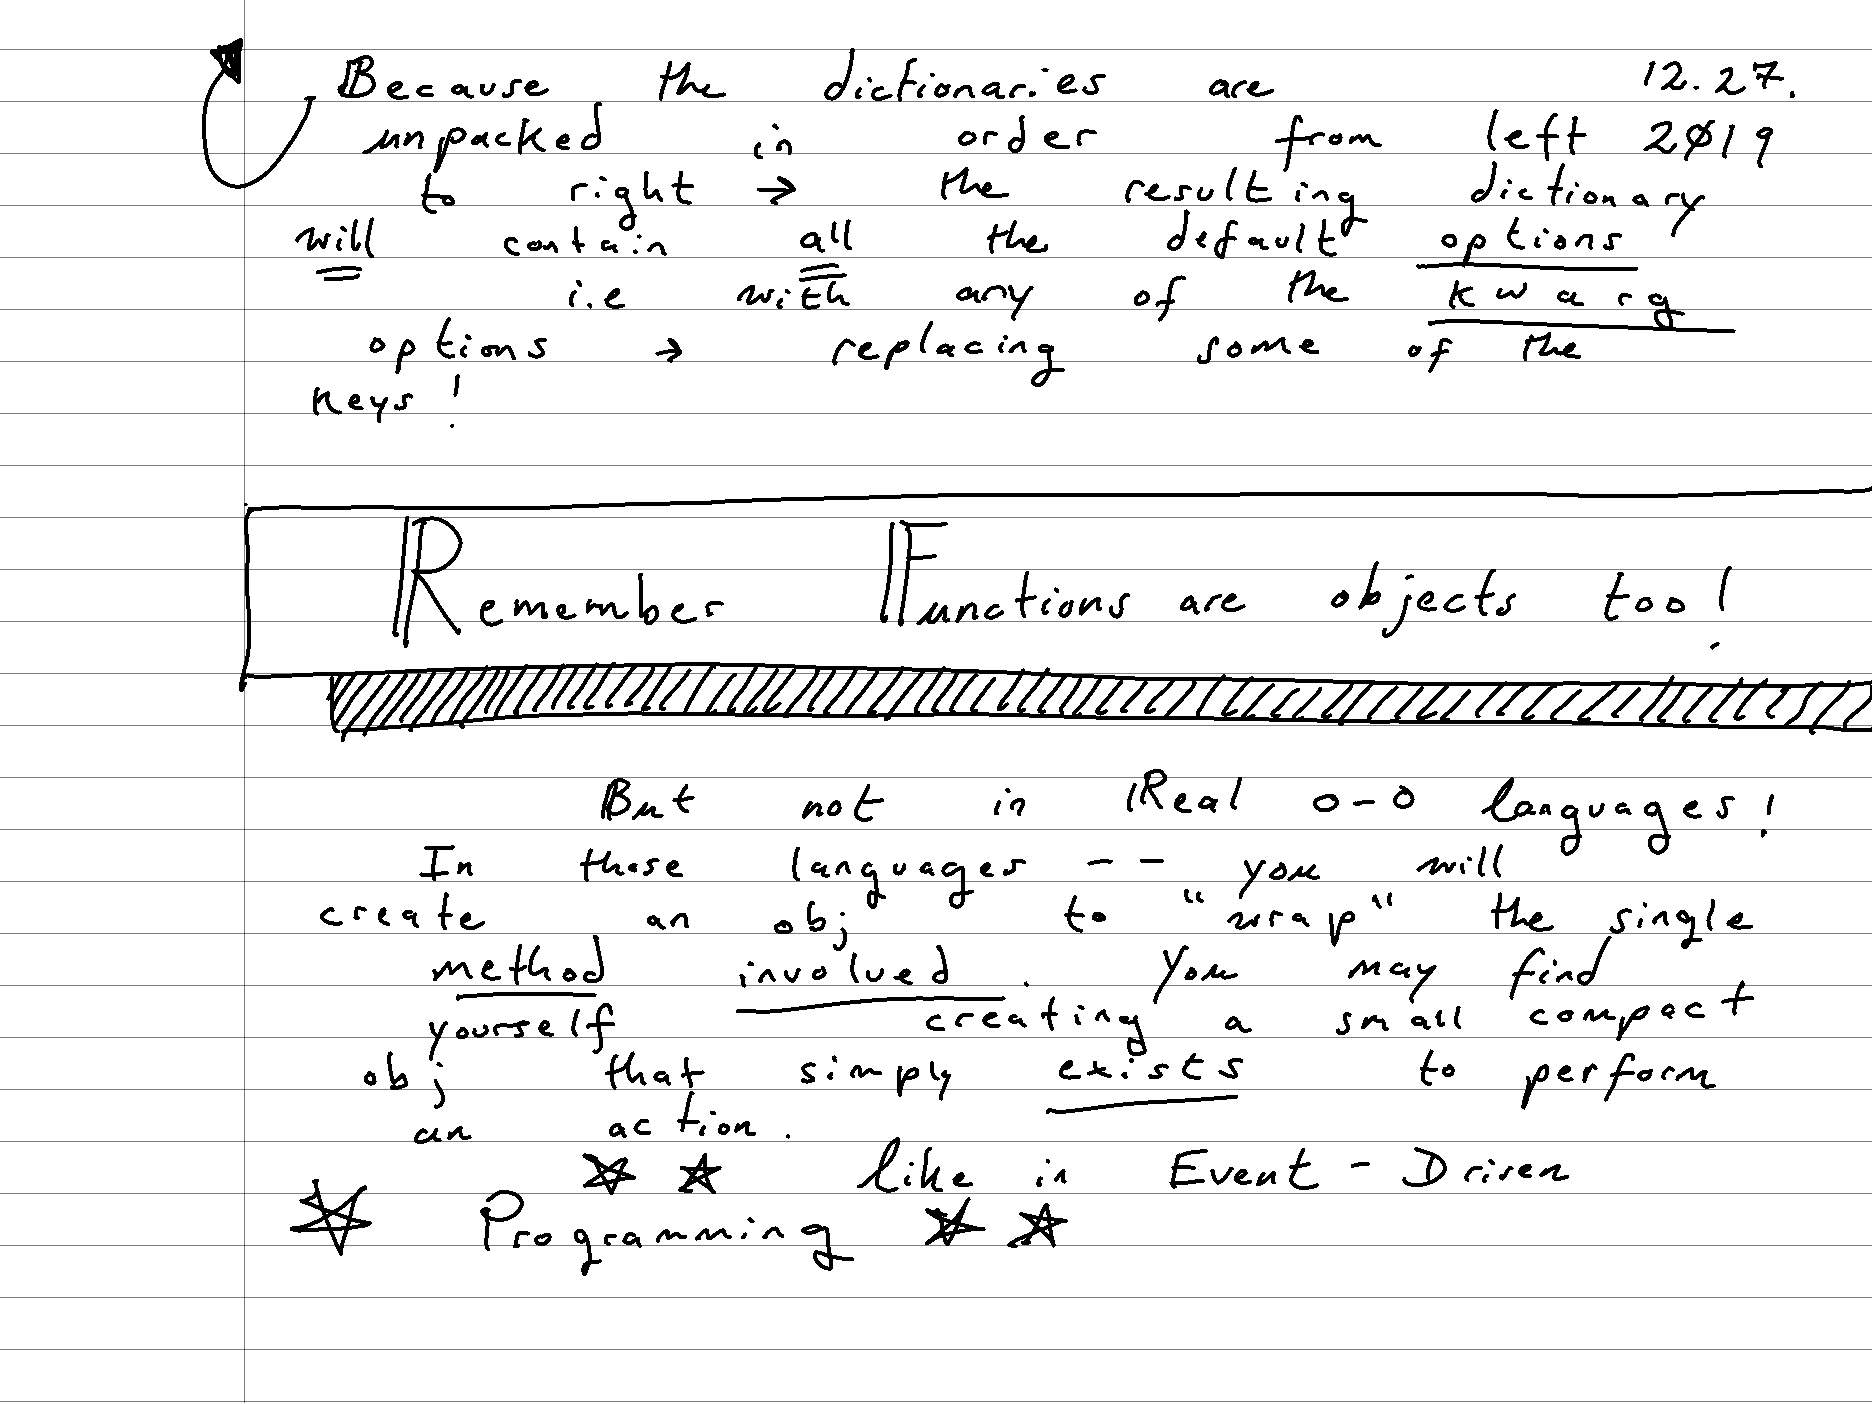 Because the dictionaries are 12.27.
unpacked in order from left 2019
to right → the resulting dictionary
will contain all the default options
i.e with any of the kwarg
options → replacing some of the
keys!
Remember Functions are objects too!
But not in Real O-O languages!
In those languages -- you will
create an obj to "wrap" the single
method involved. You may find
yourself creating a small compact
obj that simply exists to perform
an action.
like in Event-Driven
Programming